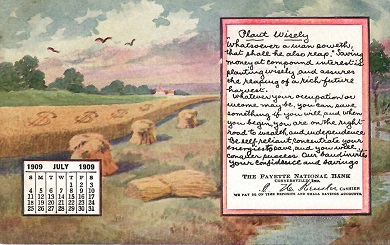 Plant Wisely
"Whatsoever a man soweth,
that shall he also reap." Saving
money at compound interest is
planting wisely and assures
the reaping of a rich future
harvest.
Whatever your occupation or
income may be, you can save
something if you will and when
you begin, you are on the right
road to wealth and independence.
Be self-reliant, concentrate your
energies to save and you will
conquer success. Our bank invites
your confidence and savings
THE FAYETTE NATIONAL BANK
CONNERSVILLE, IND.
CASHIER
WE PAY 3% ON TIME DEPOSITS AND SMALL SAVINGS ACCOUNTS.
1909 JULY 1909
S M T W T F S
1 2 3
4 5 6 7 8 9 10
11 12 13 14 15 16 17
18 19 20 21 22 23 24
25 26 27 28 29 30 31